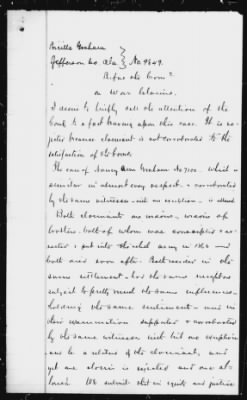 Priscilla Graham
Jefferson Co Ala } No 9849.
Before the Com'rs
on War Claims.
I desire to briefly call the attention of the
Court to a fact bearing upon this case. It is re-
jected because claimant is not corroborated to the
satisfaction of the Court.
The case of Nancy Ann Graham No 7100. which is
similar in almost every respect & corroborated
by the same witnesses with one exception is allowed
Both claimants are widows - widows of
brothers. both of whom were conscripted & ar-
rested & put into the rebel army in 1862 and
both died soon after. Both resided in the
same settlement. had the same neighbors
subject to pretty much the same influences.
holding the same sentiments and in
their examination supported & corroborated
by the same witnesses with but one exception
and he a relative of the claimant, and
yet one claim is rejected and one al-
lowed. We submit that in equity and justice